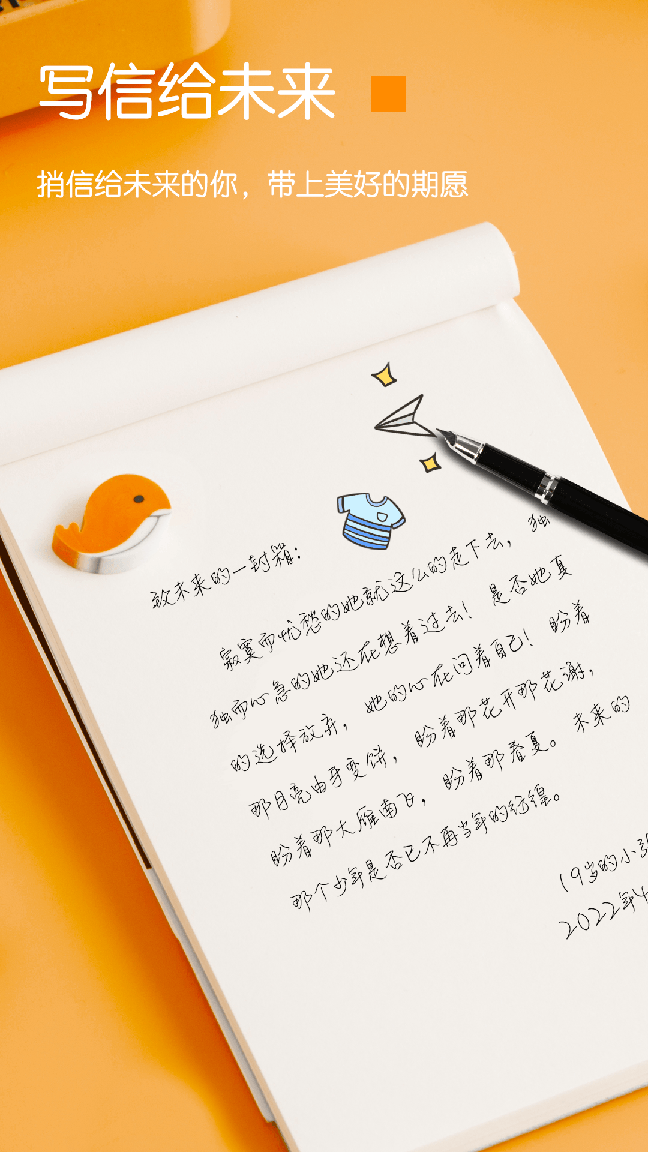 写信给未来
捎信给未来的你，带上美好的期愿
致未来的一封箱：
寂寞而忧愁的她就这么的走下去，独
独而心急的她还在想着过去！是否她夏
的选择放弃，她的心在问着自己！盼着
那月亮由牙变饼，盼着那花开那花谢，
盼着那大雁南飞，盼着那春夏。未来的
那个少年是否已不再当年的彷徨。
19岁的小
2022年4